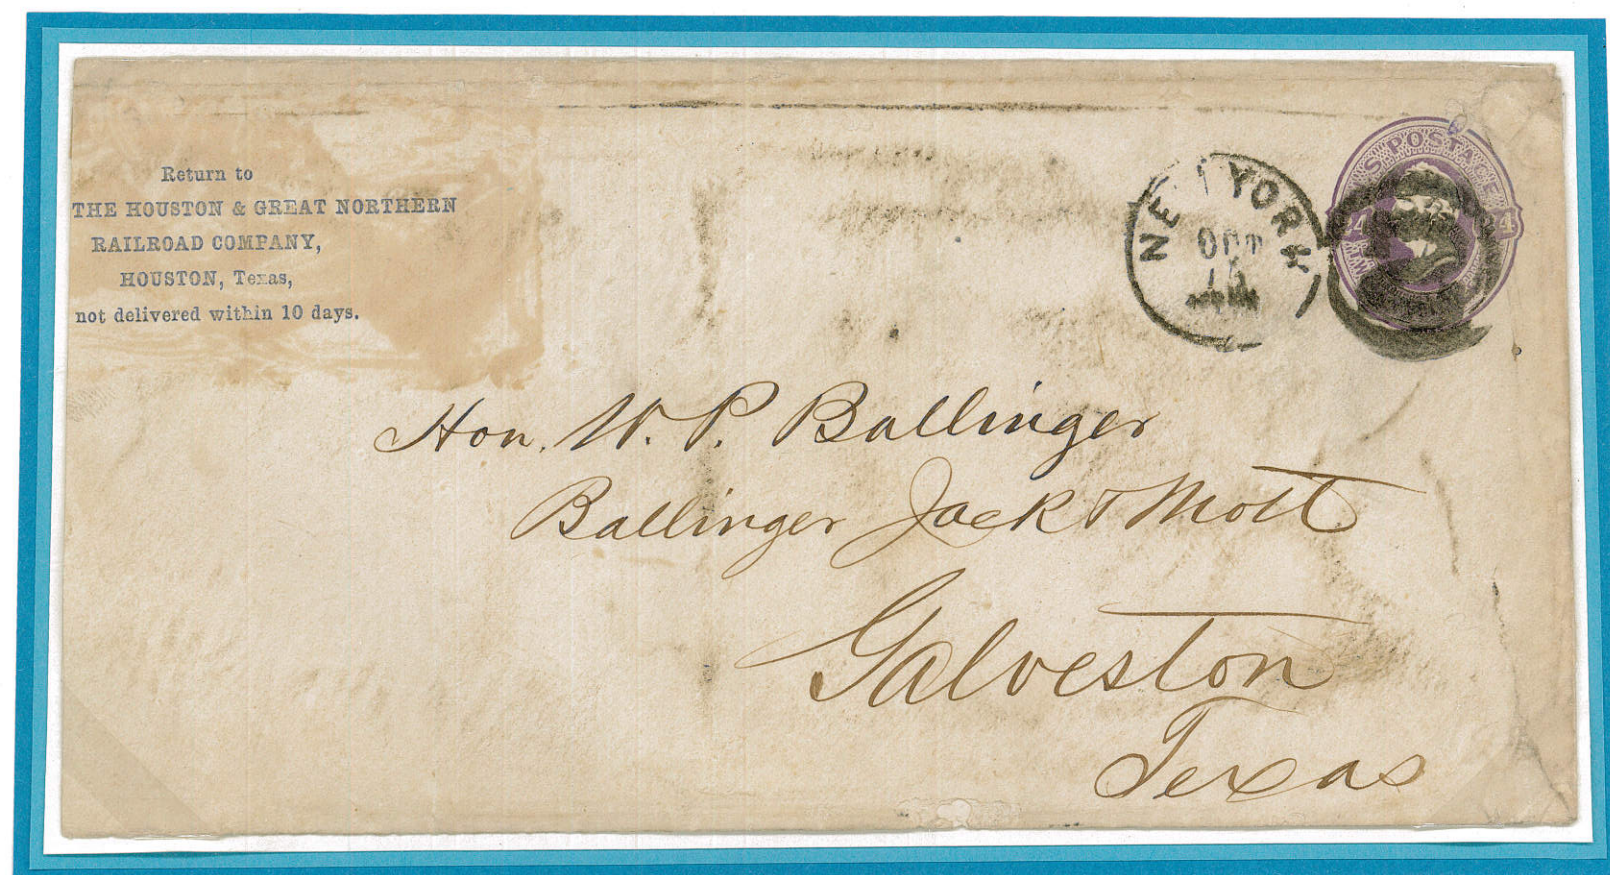 Return to
THE HOUSTON & GREAT NORTHERN
RAILROAD COMPANY,
HOUSTON, Texas,
not delivered within 10 days.
NEW YORK
OCT
U.S. POSTAGE
Hon. W. P. Ballinger
Ballinger Jack & Mott
Galveston
Texas